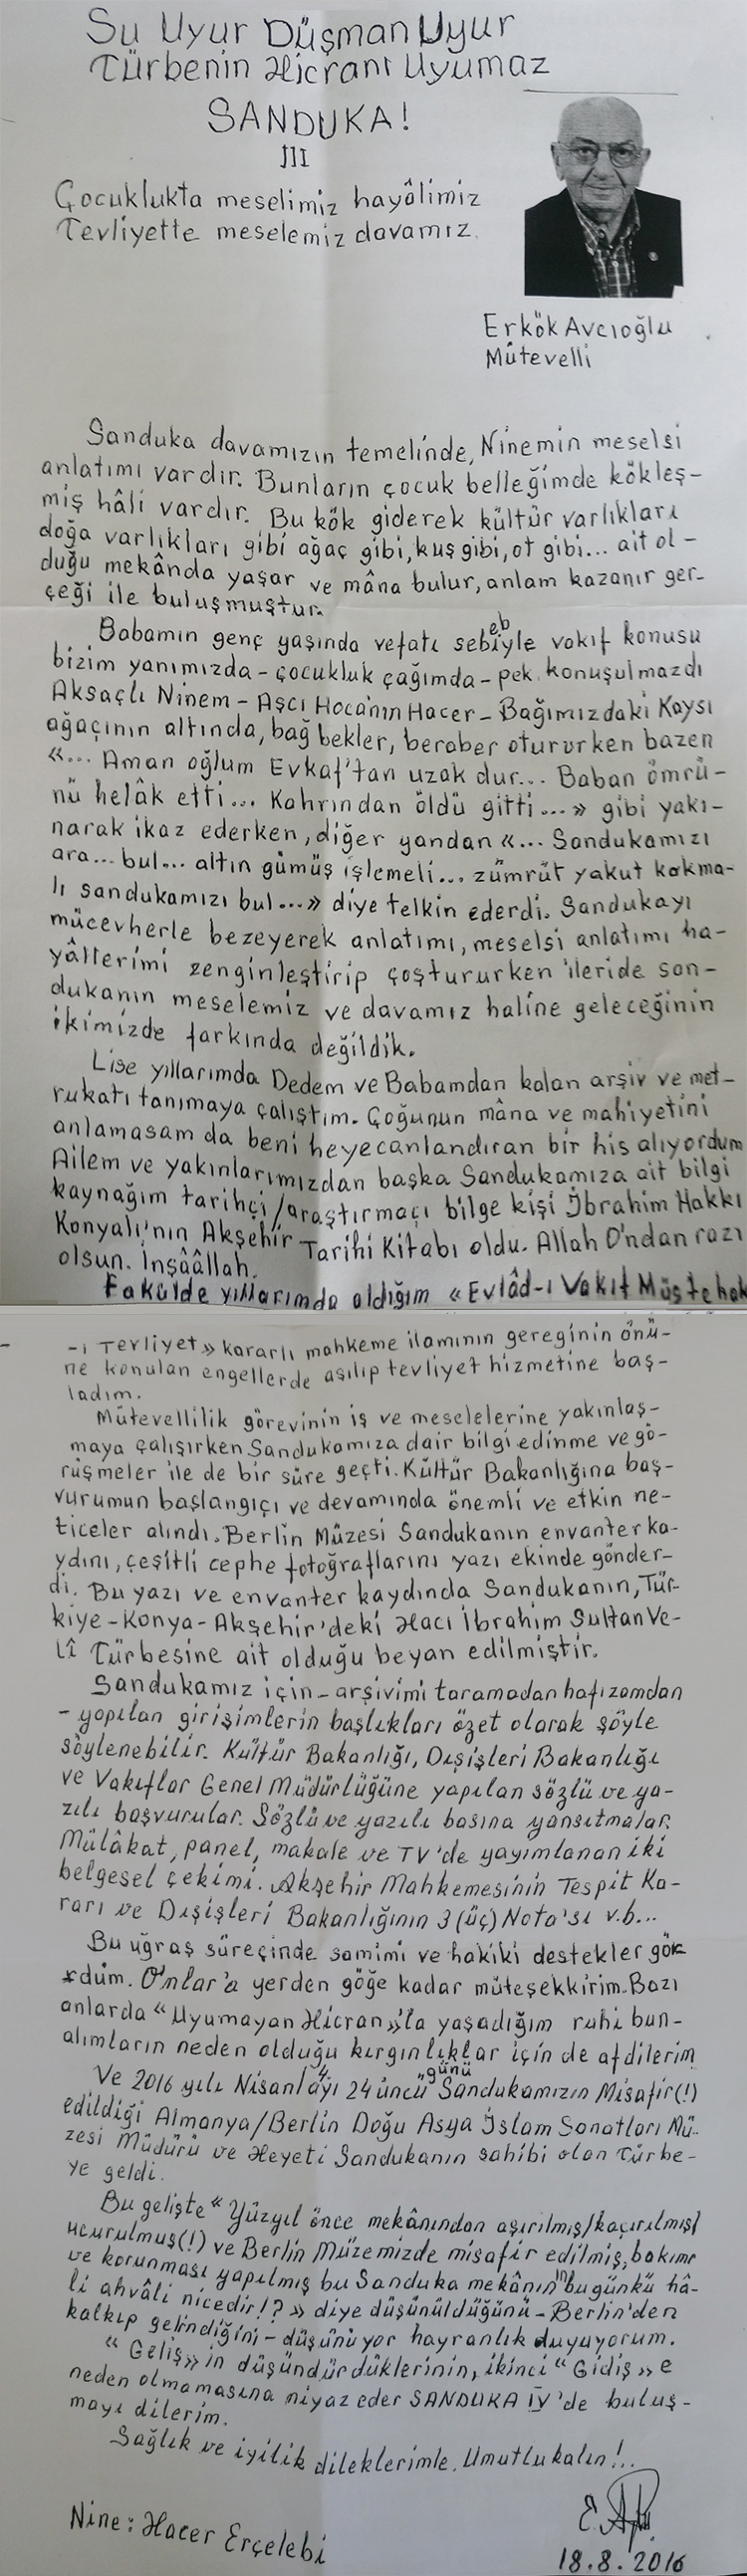 Su Uyur Düşman Uyur
Türbenin Hicranı Uyumaz
SANDUKA!
III
Çocuklukta meselimiz hayâlimiz
Tevliyette meselemiz davamız.
Erkök Avcıoğlu
Mütevelli
Sanduka davamızın temelinde, Ninemin meselsi
anlatımı vardır. Bunların çocuk belleğimde kökleş-
miş hâli vardır. Bu kök giderek kültür varlıkları
doğa varlıkları gibi ağaç gibi, kuş gibi, ot gibi... ait ol-
duğu mekânda yaşar ve mâna bulur, anlam kazanır ger-
çeği ile buluşmuştur.
Babamın genç yaşında vefatı sebebiyle vakıf konusu
bizim yanımızda - çocukluk çağımda - pek konuşulmazdı
Aksaçlı Ninem - Aşcı Hoca'nın Hacer - Bağımızdaki Kaysı
ağaçının altında, bağ bekler, beraber otururken bazen
«... Aman oğlum Evkaf'tan uzak dur... Baban ömrü-
nü helâk etti... Kahrından öldü gitti...» gibi yakı-
narak ikaz ederken, diğer yandan «... Sandukamızı
ara... bul... altın gümüş işlemeli... zümrüt yakut kakma-
lı sandukamızı bul...» diye telkin ederdi. Sandukayı
mücevherle bezeyerek anlatımı, meselsi anlatımı ha-
yâllerimi zenginleştirip çoştururken ileride san-
dukanın meselemiz ve davamız haline geleceğinin
ikimizde farkında değildik.
Lise yıllarımda Dedem ve Babamdan kalan arşiv ve met-
rukatı tanımaya çalıştım. Çoğunun mâna ve mahiyetini
anlamasam da beni heyecanlandıran bir his alıyordum
Ailem ve yakınlarımızdan başka Sandukamıza ait bilgi
kaynağım tarihçi/araştırmacı bilge kişi İbrahim Hakkı
Konyalı'nın Akşehir Tarihi Kitabı oldu. Allah O'ndan razı
olsun. İnşââllah.
Fakülde yıllarımda aldığım « Evlâd-ı Vakıf Müstehak
-ı Tevliyet» kararlı mahkeme ilamının gereğinin önü-
ne konulan engellerde aşılıp tevliyet hizmetine baş-
ladım.
Mütevellilik görevinin iş ve meselelerine yakınlaş-
maya çalışırken Sandukamıza dair bilgi edinme ve gö-
rüşmeler ile de bir süre geçti. Kültür Bakanlığına baş-
vurumun başlangıçı ve devamında önemli ve etkin ne-
ticeler alındı. Berlin Müzesi Sandukanın envanter ka-
ydını, çeşitli cephe fotoğraflarını yazı ekinde gönder-
di. Bu yazı ve envanter kaydında Sandukanın, Tür-
kiye - Konya - Akşehir'deki Hacı İbrahim Sultan Ve-
lî Türbesine ait olduğu beyan edilmiştir.
Sandukamız için - arşivimi taramadan hafızamdan
- yapılan girişimlerin başlıkları özet olarak şöyle
söylenebilir. Kültür Bakanlığı, Dışişleri Bakanlığı
ve Vakıflar Genel Müdürlüğüne yapılan sözlü ve ya-
zılı başvurular. Sözlü ve yazılı basına yansıtmalar.
Mülâkat, panel, makale ve TV'de yayımlanan iki
belgesel çekimi. Akşehir Mahkemesinin Tespit Ka-
rarı ve Dışişleri Bakanlığının 3 (üç) Nota'sı v.b...
Bu uğraş süreçinde samimi ve hakiki destekler gör
rdüm. O'nlar'a yerden göğe kadar müteşekkirim. Bazı
anlarda " Uyumayan Hicran»'la yaşadığım ruhi bun-
alımların neden olduğu kırgınlıklar için de af dilerim
Ve 2016 yılı Nisan'Ayı 24 üncü günü Sandukamızın Misafir(!)
edildiği Almanya/Berlin Doğu Asya İslam Sanatları Mü-
zesi Müdürü ve Heyeti Sandukanın sahibi olan Türbe-
ye geldi.
Bu gelişte " Yüzyıl önce mekânından aşırılmış/kaçırılmış/
ucurulmuş(!) ve Berlin Müzemizde misafir edilmiş, bakımı
ve korunması yapılmış bu Sanduka mekânının bugünkü hâ-
li ahvâli nicedir!?» diye düşünüldüğünü - Berlin'den
kalkıp gelindiğini - düşünüyor hayranlık duyuyorum.
" Geliş» in düşündürdüklerinin, ikinci " Gidiş» e
neden olmamasına niyaz eder SANDUKA IV'de buluş-
mayı dilerim.
Sağlık ve iyilik dileklerimle. Umutlu kalın!..
Nine: Hacer Erçelebi
18.8.2016